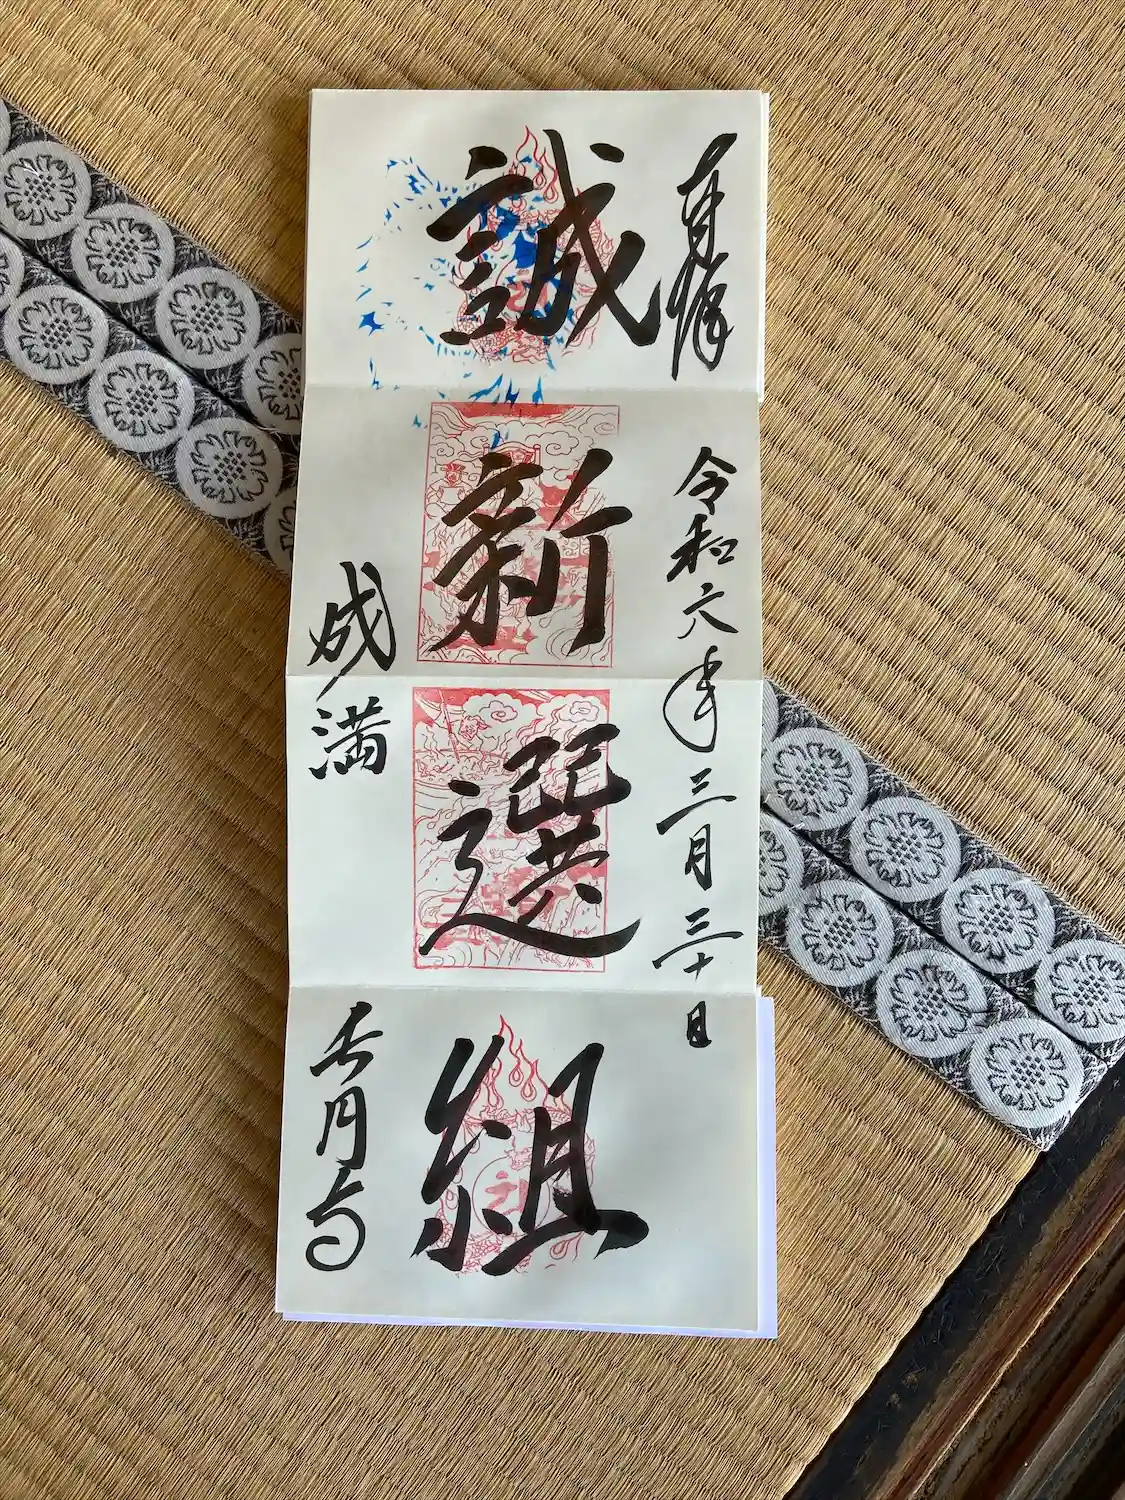 令和六年三月三十日
誠新選組
成満
長円寺